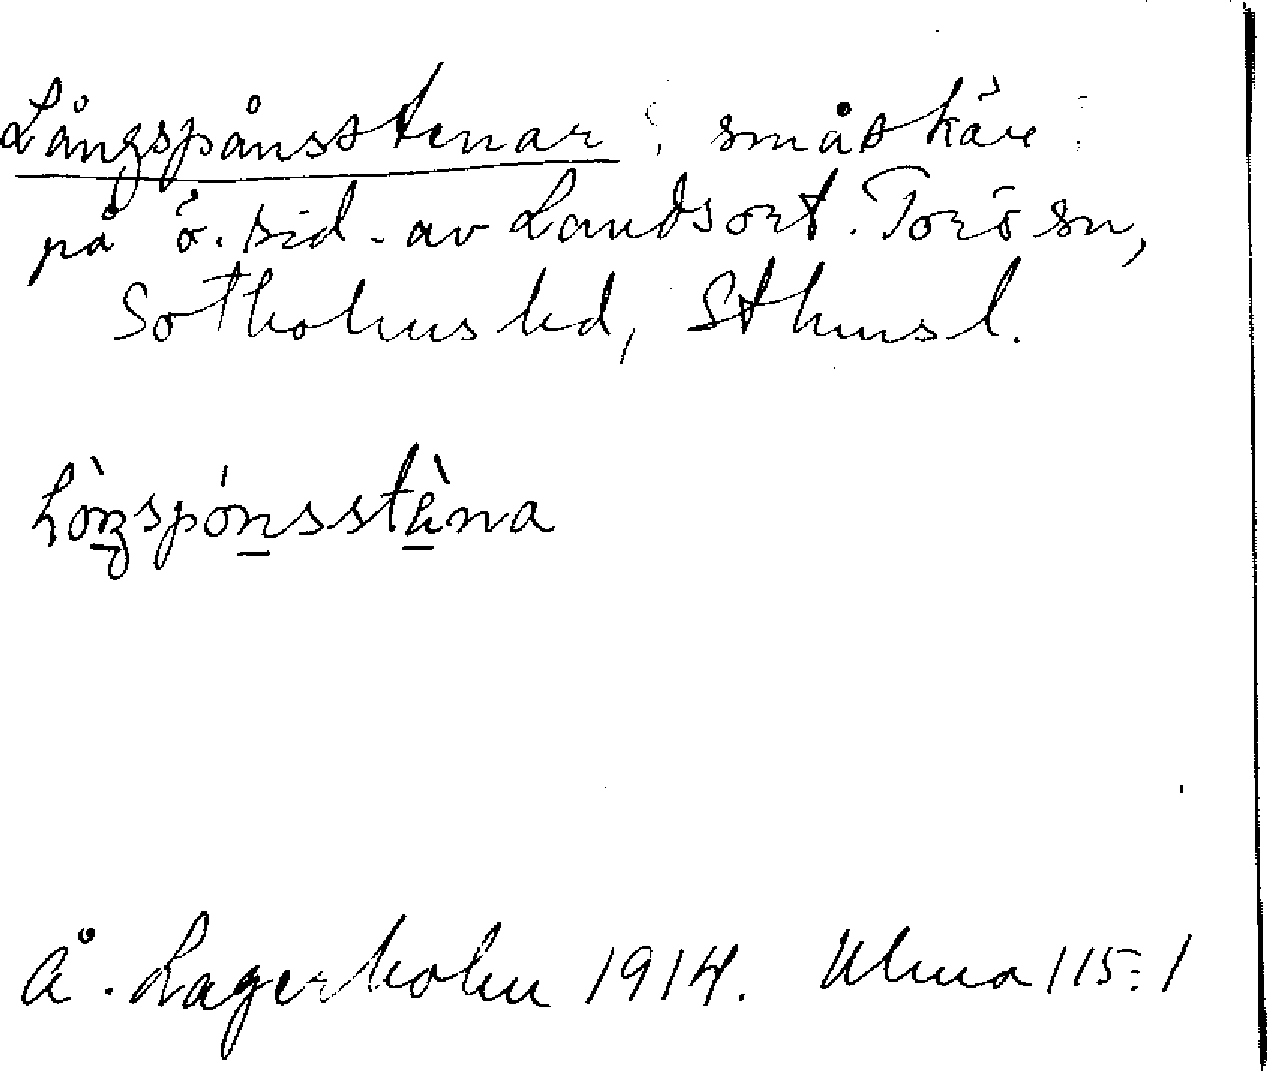 Långspånsstenar, småskär
på ö. sid. av Landsort. Torö sn,
Sotholms hd, Sthms l.
Å. Lagerholm 1914. Ulma 115:1